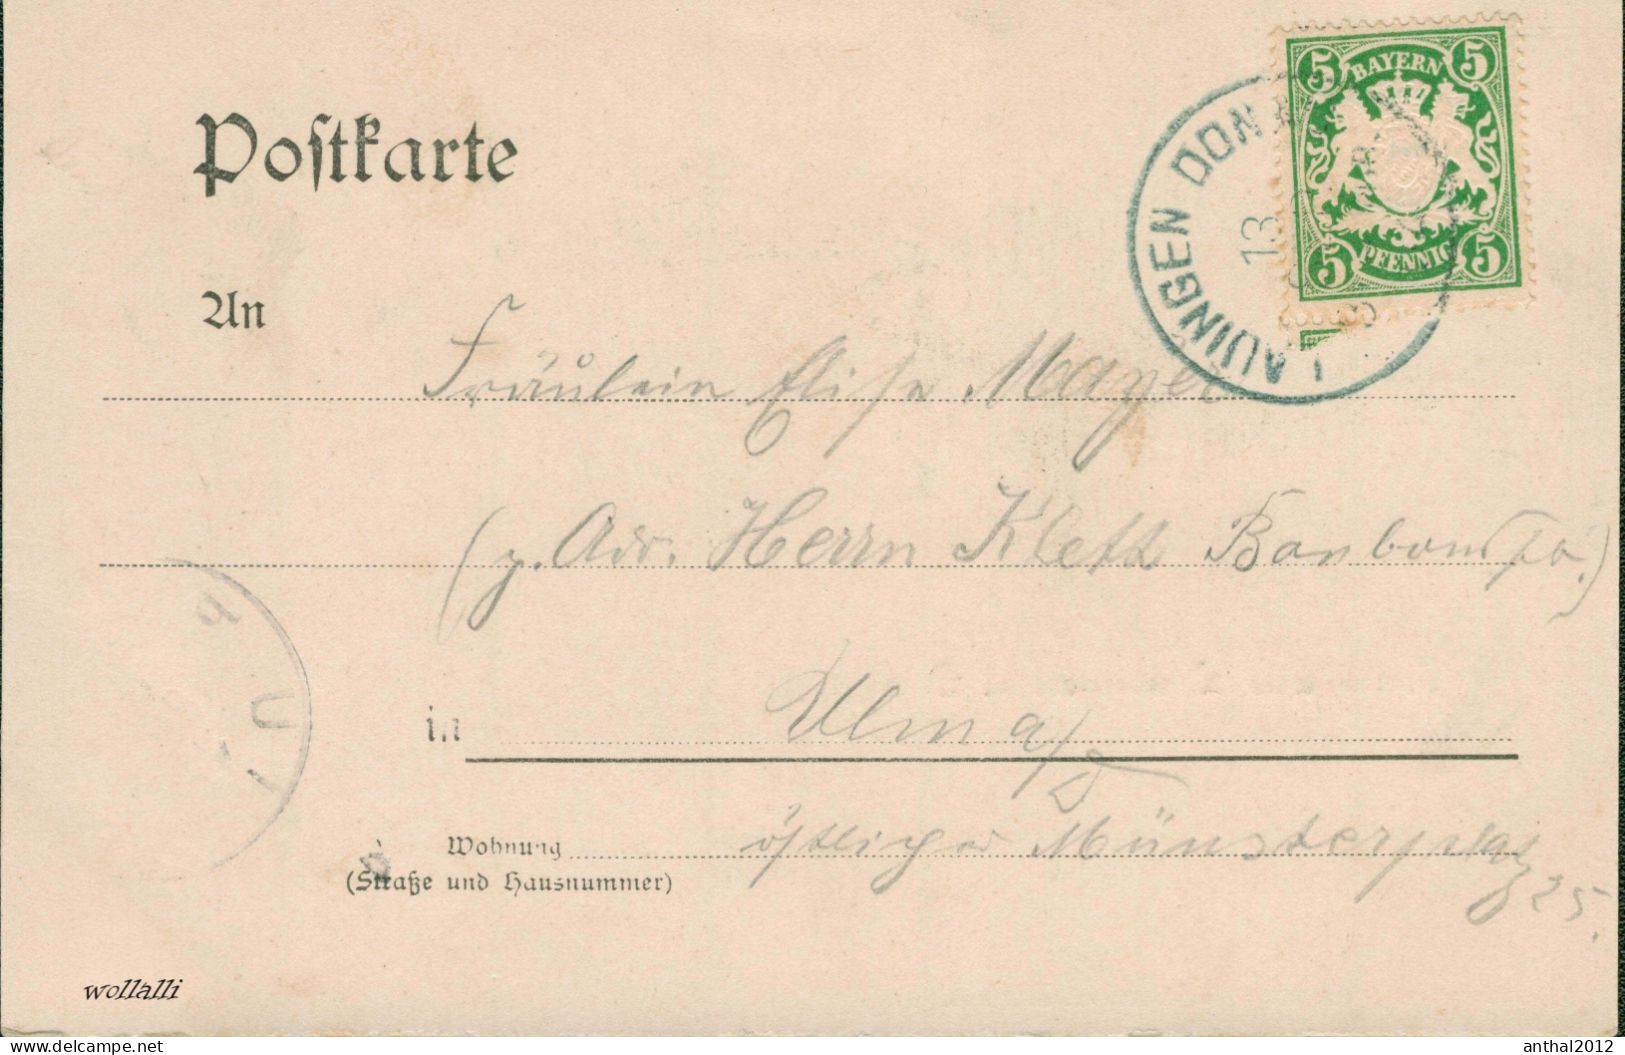 Postkarte
5 BAYERN 5
5 PFENNIG 5
LAUINGEN DON
13
An
Fräulein Elise Mayer
(p. Adr. Herrn Klett
in Ulm a/D
Wohnung östlicher Münsterplatz 25.
(Straße und Hausnummer)
wollalli
delcampe.net
anthal2012